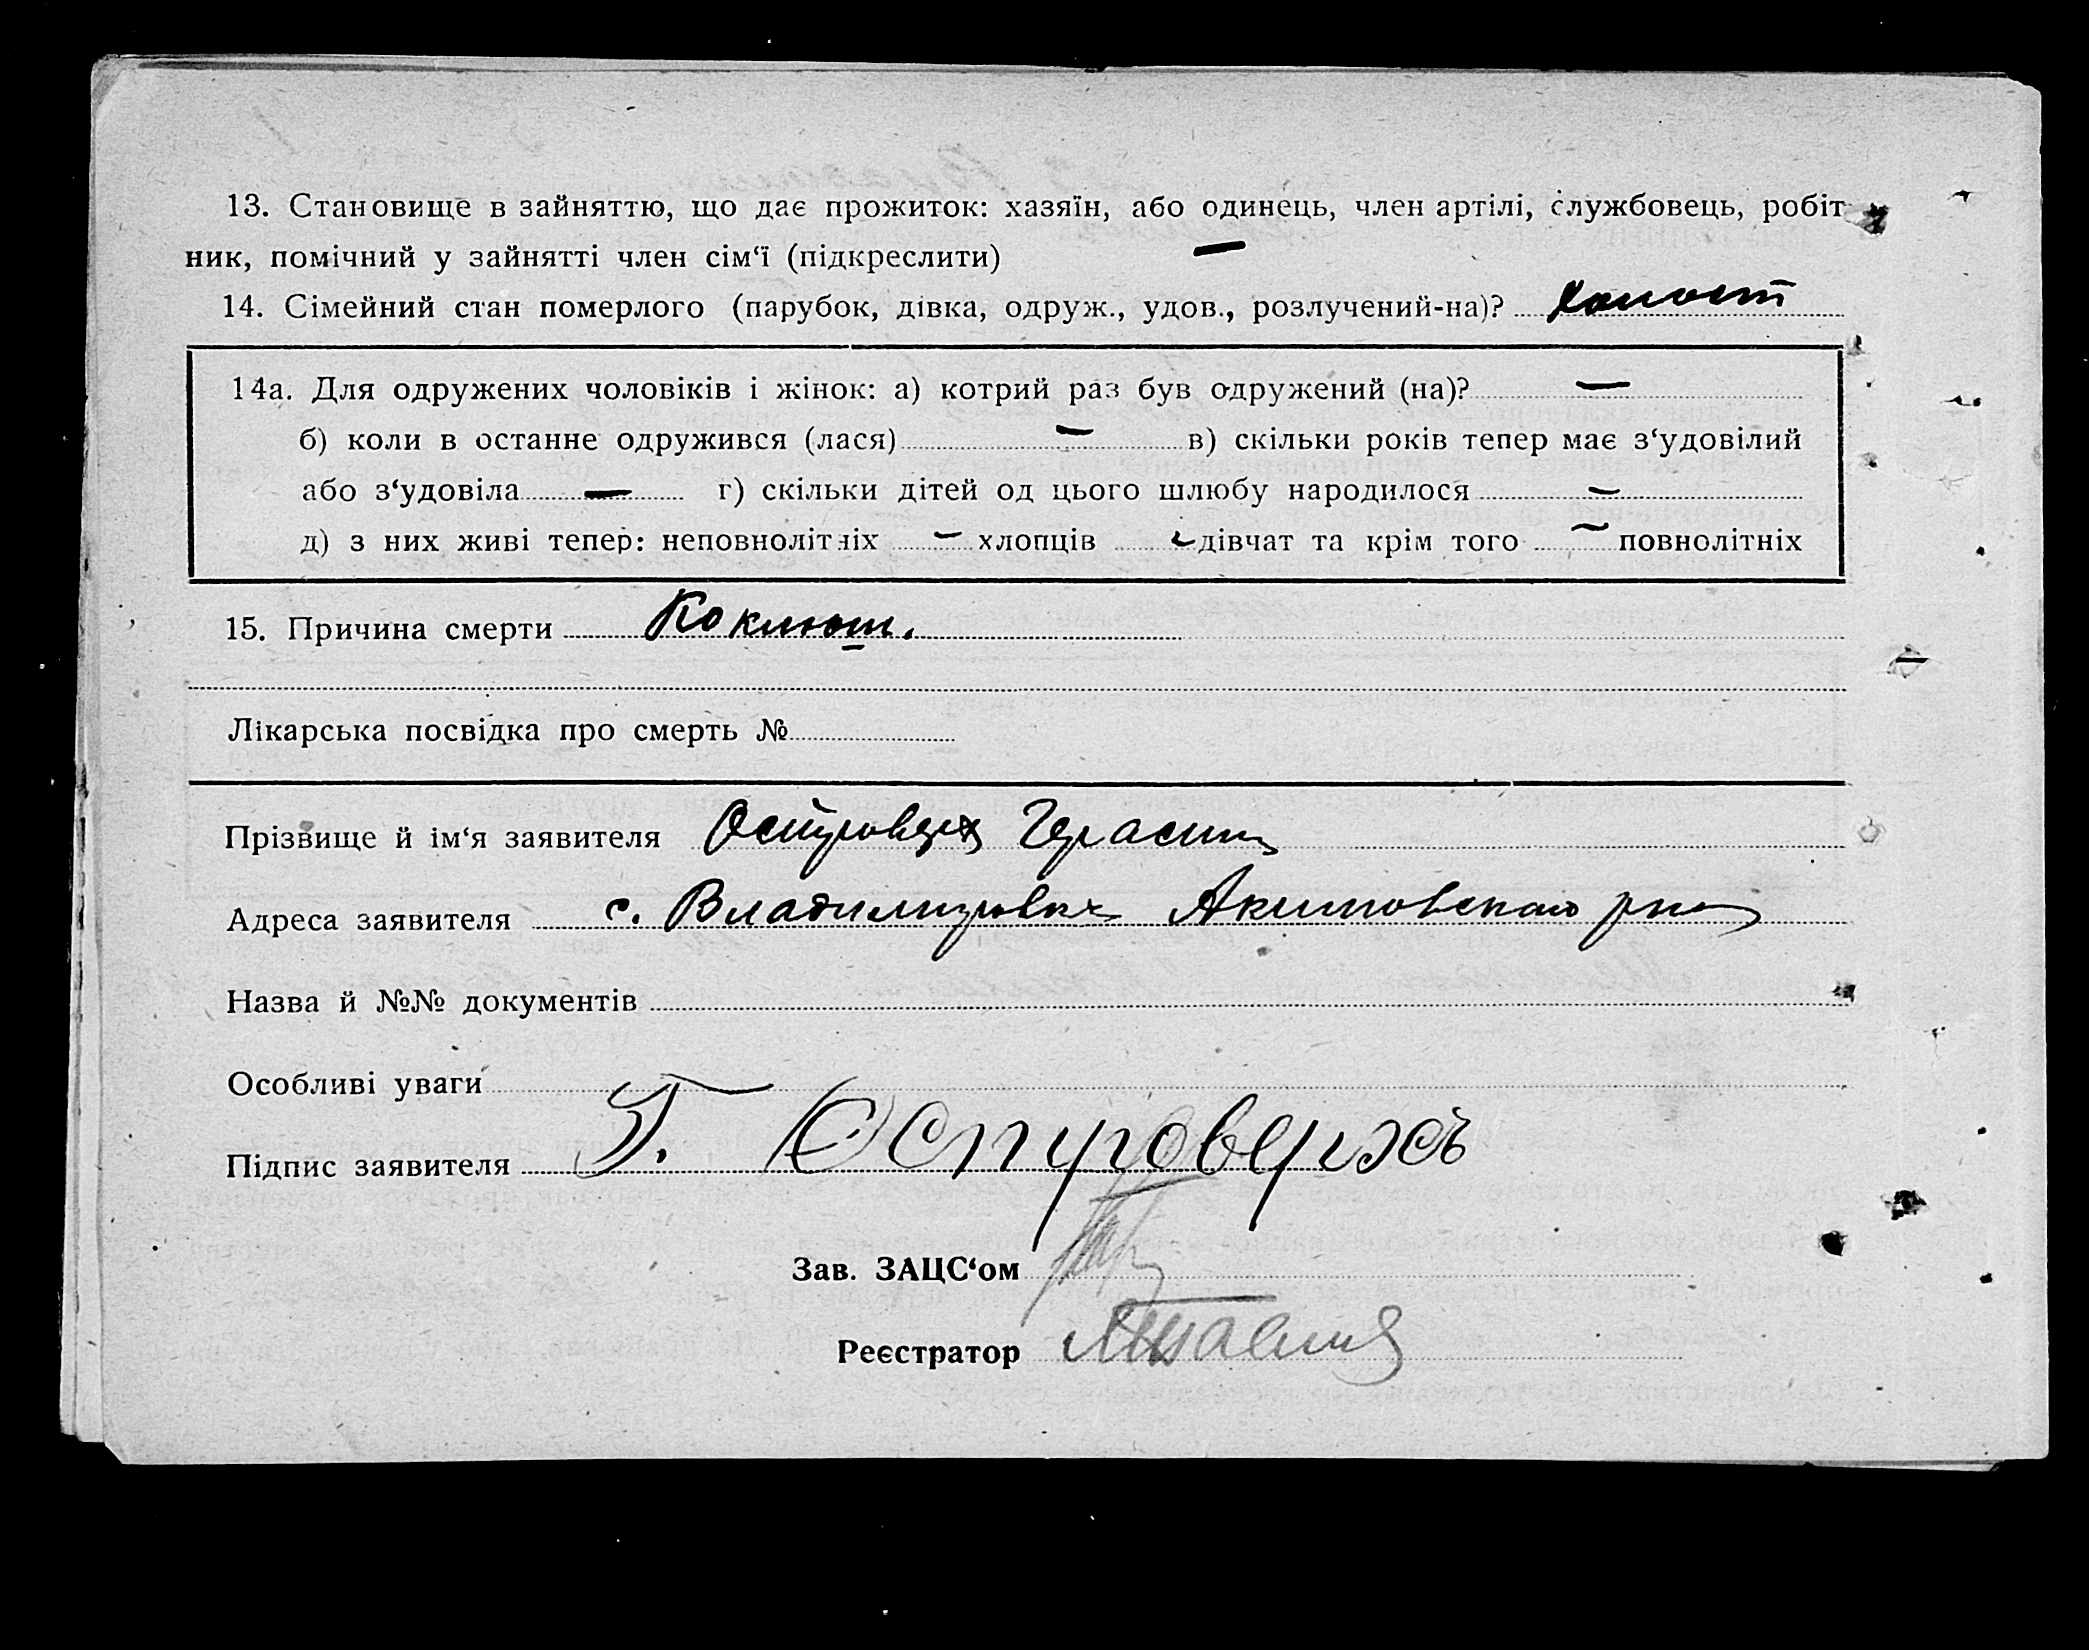 13. Становище в зайняттю, що дає прожиток: хазяїн, або одинець, член артілі, службовець, робіт-
ник, помічний у зайнятті член сім‘ї (підкреслити) —
14. Сімейний стан померлого (парубок, дівка, одруж., удов., розлучений-на)? холост
14а. Для одружених чоловіків і жінок: а) котрий раз був одружений (на)? —
б) коли в останне одружився (лася) — в) скільки років тепер має з‘удовілий
або з‘удовіла — г) скільки дітей од цього шлюбу народилося —
д) з них живі тепер: неповнолітніх — хлопців — дівчат та крім того — повнолітніх
15. Причина смерти Коклюш.
Лікарська посвідка про смерть №
Прізвище й ім‘я заявителя Островерх Герасим
Адреса заявителя с. Владимировка Акимовского р-на
Назва й №№ документів
Особливі уваги
Підпис заявителя Г. Островерхъ
Зав. ЗАЦС‘ом
Реєстратор